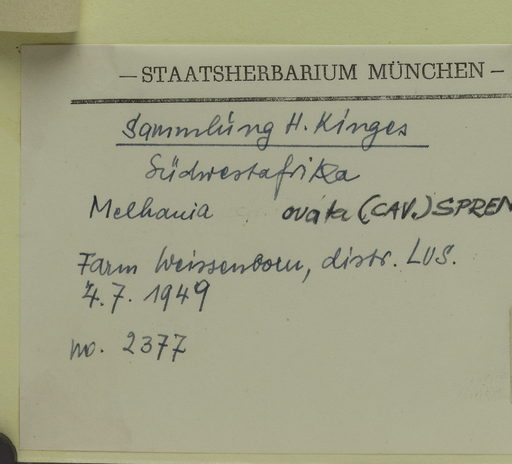 — STAATSHERBARIUM MÜNCHEN —
Sammlung H. Kinges
Südwestafrika
Melhania ovata (CAV.) SPREN
Farm Weissenborn, distr. LUS.
4.7. 1949
no. 2377